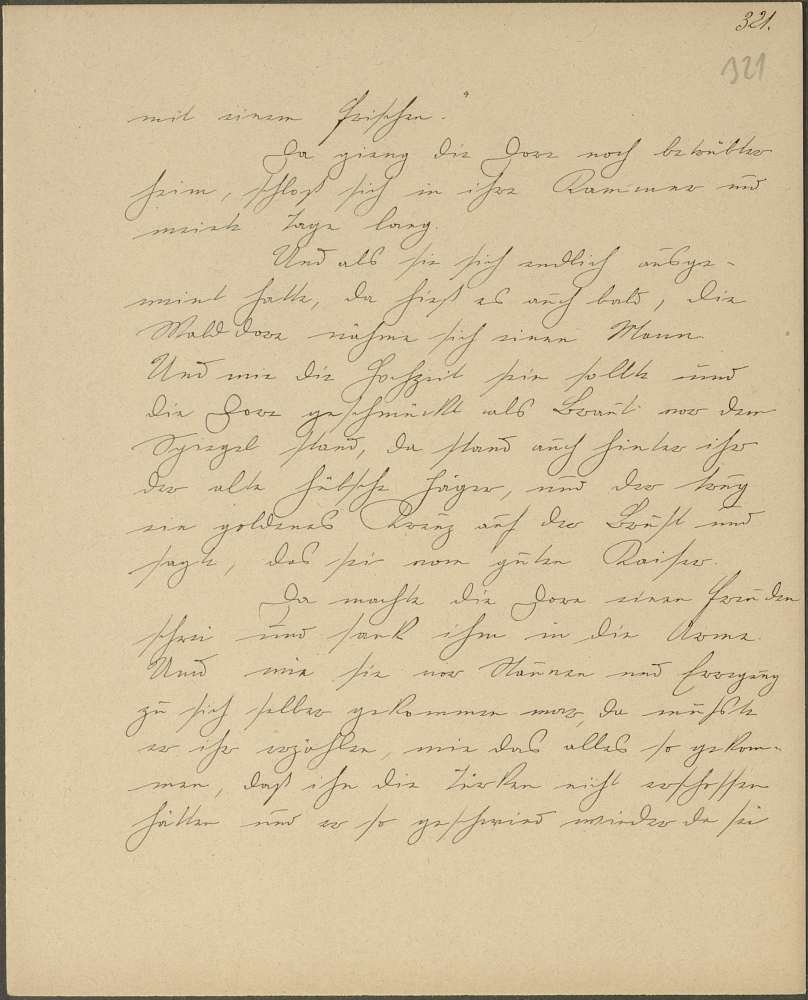 321.
321
mit einem frischen."
Da gieng die Dore noch betrübter
heim, schloß sich in ihre Kammer und
weinte Tage lang.
Und als sie sich endlich ausge-
weint hatte, da hieß es auch bald, die
Walddore nähme sich einen Mann.
Und wie die Hochzeit sein sollte und
die Dore geschmückt als Braut vor dem
Spiegel stand, da stand auch hinter ihr
der alte hübsche Jäger, und der trug
ein goldenes Kreuz auf der Brust und
sagte, das sei vom guten Kaiser.
Da machte die Dore einen Freuden
schrei und sank ihm in die Arme.
Und wie sie vor Staunen und Erregung
zu sich selber gekommen war, da mußte
er ihr erzählen, wie das alles so gekom-
men, daß ihn die Türken nicht erschossen
hätten und er so geschwind wieder da sei